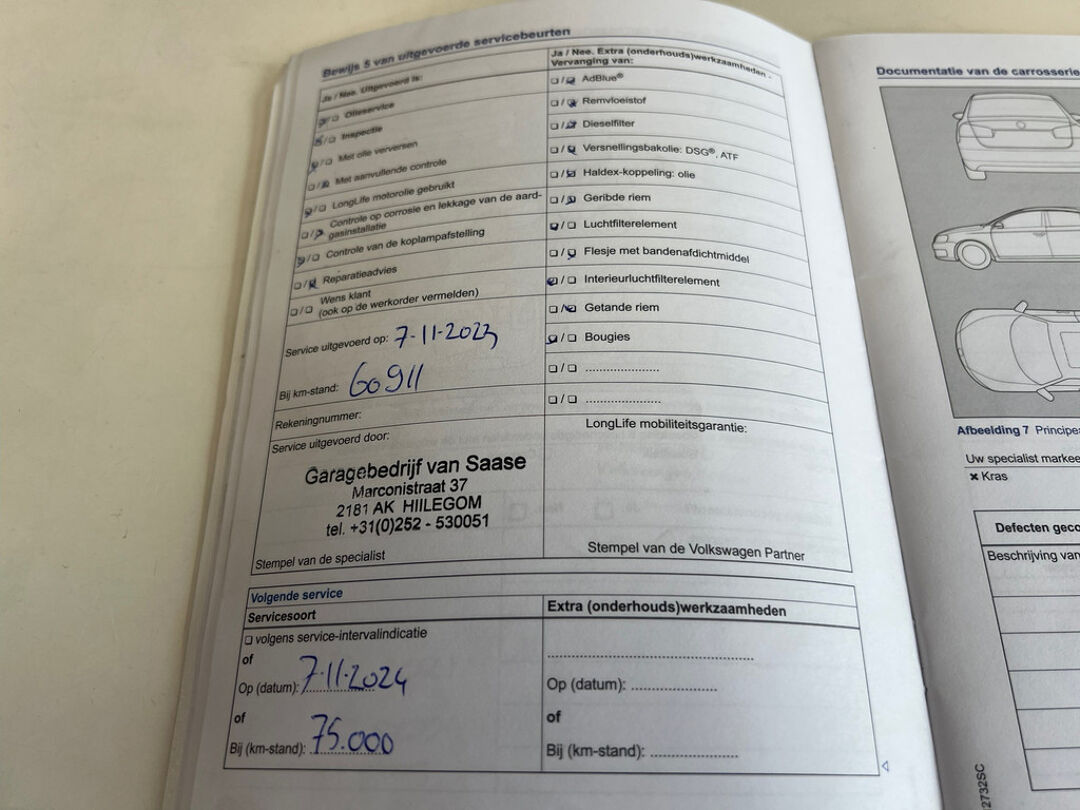 Bewijs 5 van uitgevoerde servicebeurten
Ja / Nee. Uitgevoerd is:
Olieservice
Inspectie
Met olie verversen
Met aanvullende controle
LongLife motorolie gebruikt
Controle op corrosie en lekkage van de aard-
gasinstallatie
Controle van de koplampafstelling
Reparatieadvies
Wens klant
(ook op de werkorder vermelden)
Service uitgevoerd op: 7-11-2023
Bij km-stand: 60911
Rekeningnummer:
Service uitgevoerd door:
Garagebedrijf van Saase
Marconistraat 37
2181 AK HIILEGOM
tel. +31(0)252 - 530051
Stempel van de specialist
Ja / Nee. Extra (onderhouds)werkzaamheden -
Vervanging van:
AdBlue®
Remvloeistof
Dieselfilter
Versnellingsbakolie: DSG®, ATF
Haldex-koppeling: olie
Geribde riem
Luchtfilterelement
Flesje met bandenafdichtmiddel
Interieurluchtfilterelement
Getande riem
Bougies
LongLife mobiliteitsgarantie:
Stempel van de Volkswagen Partner
Volgende service
Servicesoort
volgens service-intervalindicatie
of
Op (datum): 7-11-2024
of
Bij (km-stand): 75.000
Extra (onderhouds)werkzaamheden
Op (datum):
of
Bij (km-stand):
Documentatie van de carrosserie
Afbeelding 7 Principe
Uw specialist markee
× Kras
Defecten geco
Beschrijving van
2732SC